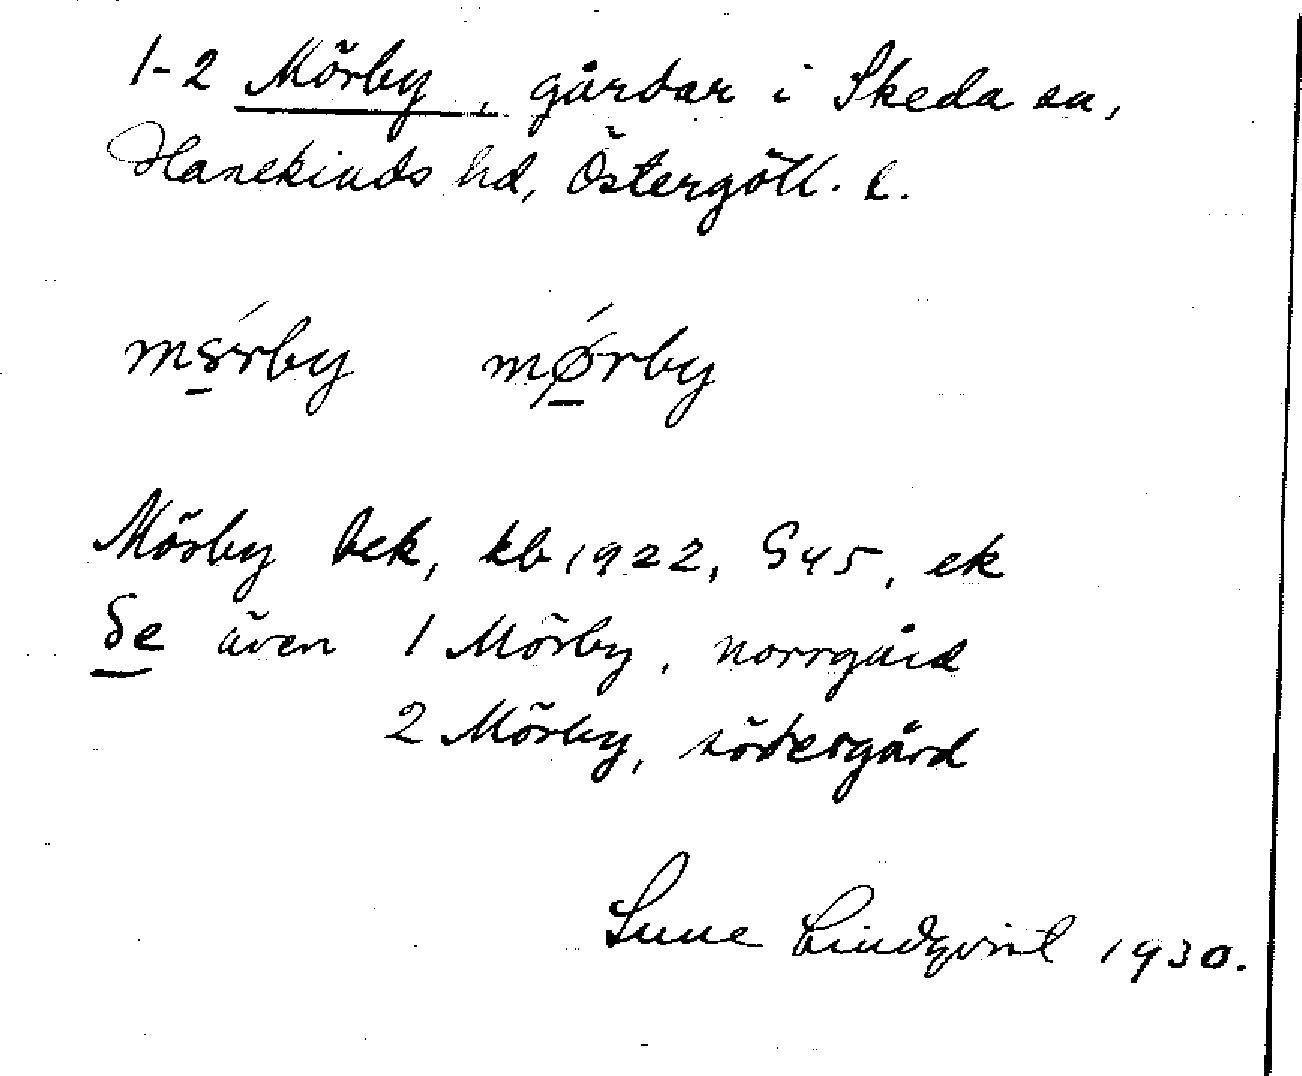 1-2 Mörby, gårdar i Skeda sn,
Hanekinds hd, Östergötl. l.
mørby
Mörby bek, kb 1922, S 45, ek
Se även 1 Mörby, norrgård
2 Mörby, södergård
Sune Lindqvist 1930.